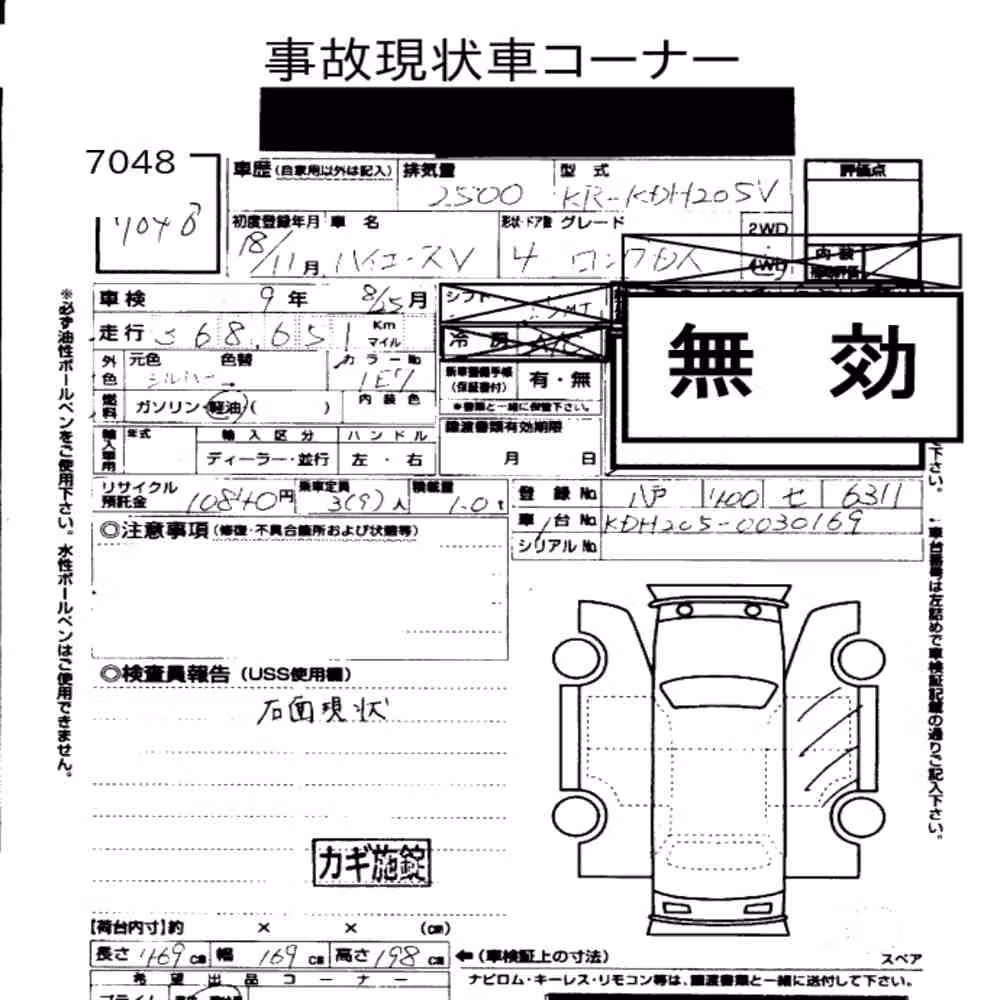 事故現状車コーナー
7048
7048
車歴(自家用以外は記入) 排気量 型式 評価点
2500 KR-KDH205V
初度登録年月 車名 形状・ドア数 グレード 2WD
18/11月 ハイエースV 4 ロングDX 4WD 内装
車検 9年 8/25月 シフト
走行 368,651 Km マイル 冷房 A/C
無効
外色 元色 色替 カラーNo
シルバー→ 1E7
新車整備手帳(保証書付) 有・無
※書類と一緒に保管下さい。
燃料 ガソリン・軽油・( ) 内装色
輸入車用 年式 輸入区分 ハンドル
ディーラー・並行 左・右
譲渡書類有効期限
月 日
リサイクル預託金 10840円 乗車定員 3(9)人 積載量 1.0t
登録No 八戸 400 せ 6311
車台No KDH205-0030169
シリアルNo
◎注意事項(修復・不具合箇所および状態等)
◎検査員報告(USS使用欄)
右面現状
カギ施錠
【荷台内寸】約 × × (cm)
長さ 469cm 幅 169cm 高さ 198cm ←(車検証上の寸法)
スペア
希望出品コーナー
ナビロム・キーレス・リモコン等は、譲渡書類と一緒に送付して下さい。
※必ず油性ボールペンをご使用下さい。水性ボールペンはご使用できません。
下さい。
←車台番号は左詰めで車検証記載の通りご記入下さい。